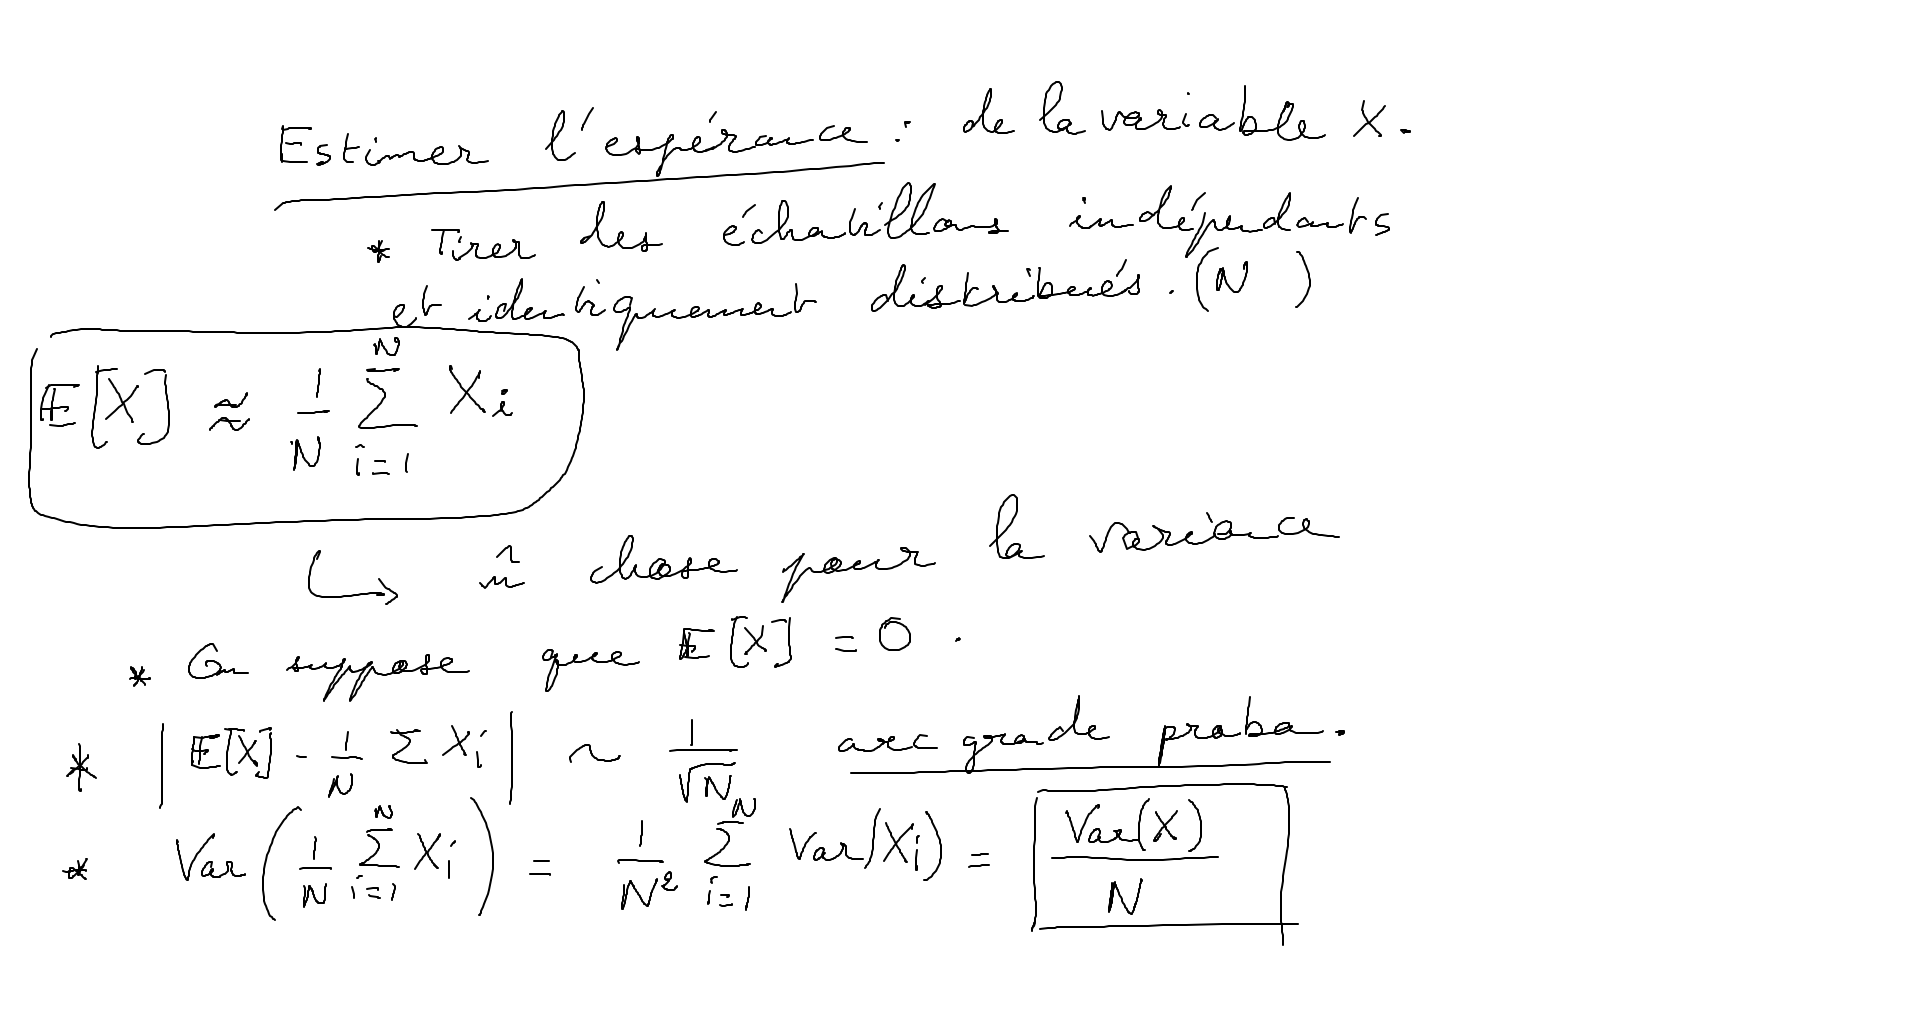 Estimer l'espérance : de la variable X.
* Tirer des échantillons indépendants
et identiquement distribués. (N )
𝔼[X] ≈ 1/N ∑_{i=1}^{N} X_i
↳ m̂ chose pour la variance
* On suppose que 𝔼[X] = 0.
* |𝔼[X] - 1/N ∑ X_i| ~ 1/√N avec grande proba.
* Var(1/N ∑_{i=1}^{N} X_i) = 1/N² ∑_{i=1}^{N} Var(X_i) = Var(X)/N